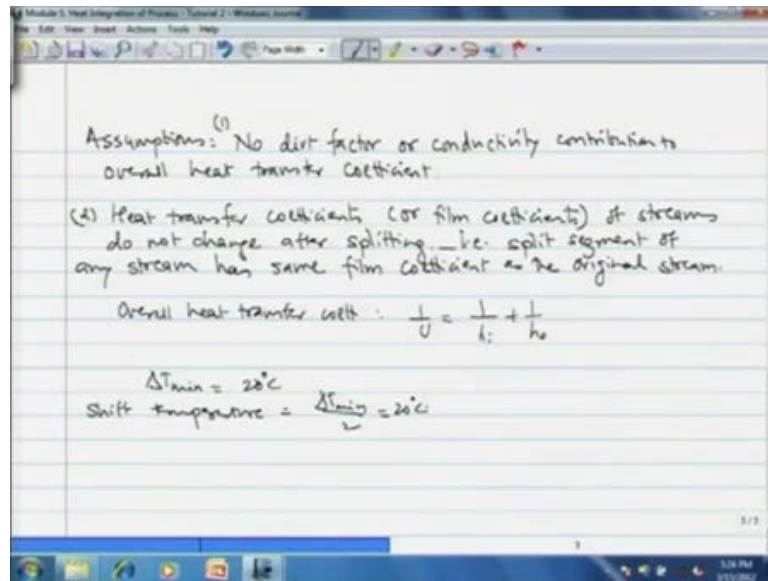 Module 5. Heat Integration of Process - Tutorial 2 - Windows Journal
File Edit View Insert Actions Tools Help
Page Width
Assumptions: (1) No dirt factor or conductivity contribution to
overall heat transfer coefficient.
(2) Heat transfer coefficients (or film coefficients) of streams
do not change after splitting. i.e. split segment of
any stream has same film coefficient as the original stream.
Overall heat transfer coeff : 1/U = 1/hi + 1/ho
ΔTmin = 20°C
Shift temperature = ΔTmin/2 = 20°C
3/3
1
3:26 PM
3/15/2012